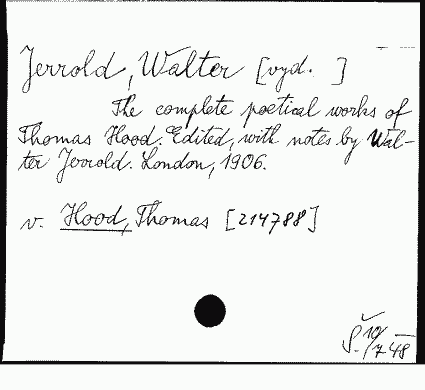 Jerrold, Walter [vyd. ]
The complete poetical works of
Thomas Hood. Edited, with notes by Wal-
ter Jerrold. London, 1906.
v. Hood, Thomas [214788]
Š. 10/7 48